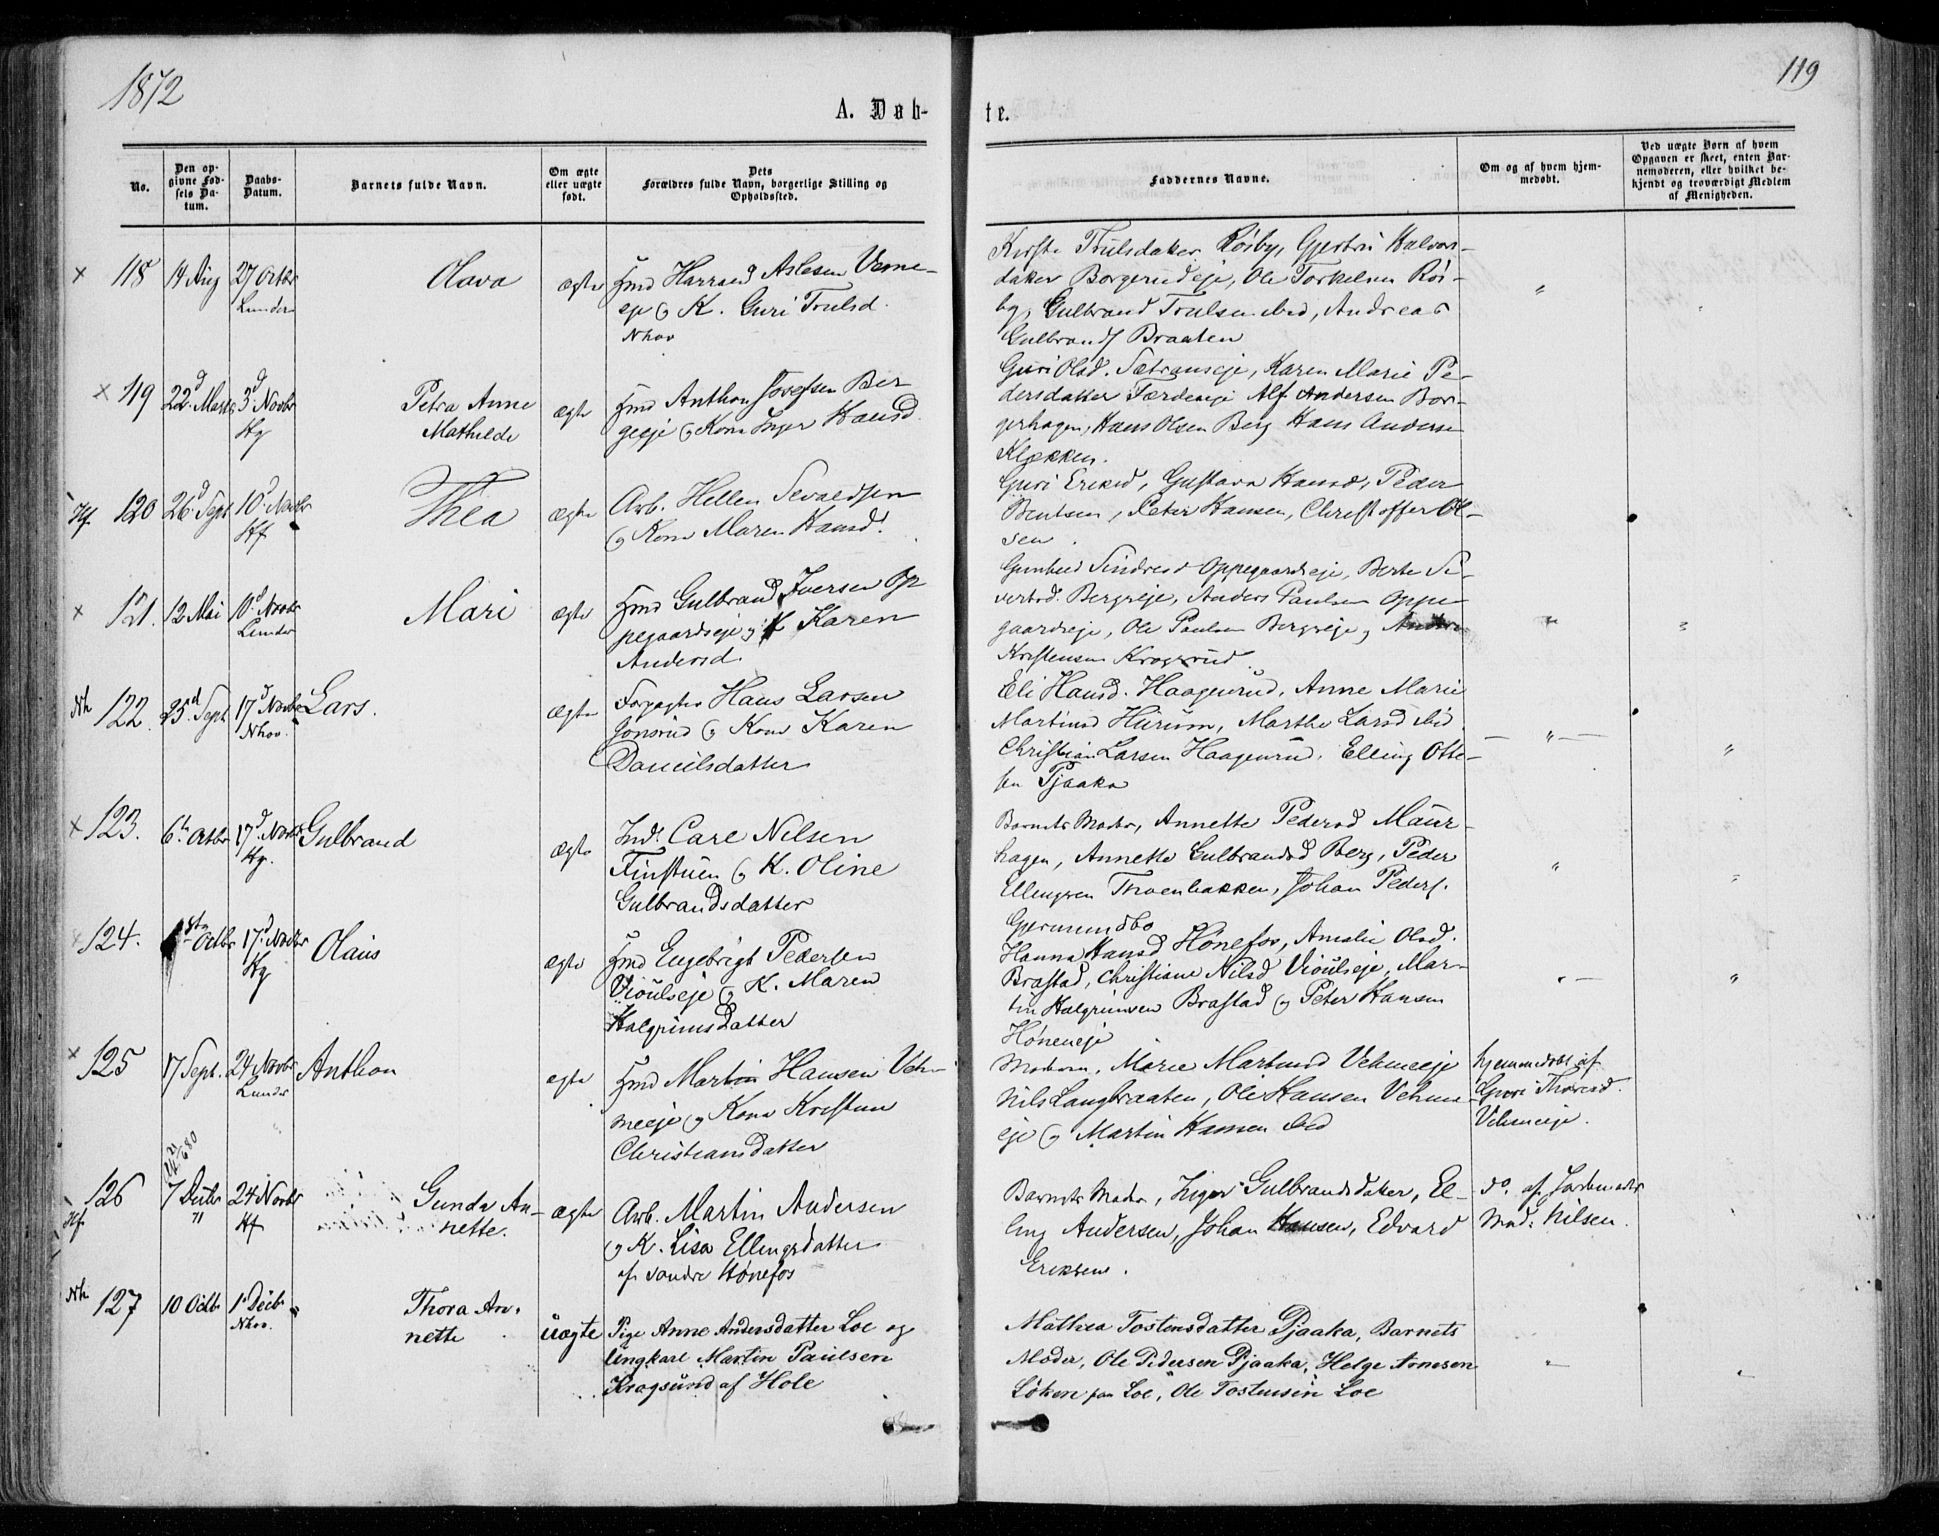 1872
119
A. Døb-
te.
No.
Den op-
givne Fød-
sels Da-
tum.
Daabs-
Datum.
Barnets fulde Navn.
Om ægte
eller uægte
født.
Dets
Forældres fulde Navn, borgerlige Stilling og
Opholdssted.
Faddernes Navne.
Om og af hvem hjem-
medøbt.
Ved uægte Børn af hvem
Opgaven er skeet, enten Bar-
nemoderen, eller hvilket be-
kjendt og troværdigt Medlem
af Menigheden.
× 118 14 Aug 27 Octbr
Lunder
Olava
ægte
Hmd Harrand Aslesen Veme-
eje og K. Guri Trulsd.
Nhov
Kirsti Trulsdaker Rösby, Gjertru Halvors-
daker Borgerudeje, Ole Torkelsen Rös-
by, Gulbrand Trulsen ibid, Andreas
Gulbrands Braaten
"
× 119 22d Marts 3d Novbr
Hg
Petra Anne
Mathilde
ægte
Hmd Anthon Josefsen Ber
geeje og Kone Inger Hansd
Guri Olsd. Sætranseje, Karen Marie Pe-
dersdatter Færdeneje Alf Andersen Bor-
gerhagen, Hans Olsen Berg Hans Anderse
Klækken.
Hf. 120 26d Sept 10d Novbr
Hf
Thea
ægte
Arb. Hellen Sevaldsen
og Kone Maren Hansd.
Guri Eriksd, Gustava Hansd, Peder
Bentsen, Peter Hansen, Christoffer Ol-
sen.
× 121. 12 Mai 10d Novbr
Lunder
Mari
ægte
Hmd Gulbrand Iversen Op
pegaardseje og K Karen
Andersd.
Gunhild Sindresd Oppegaardseje, Berte Si-
vertsd. Bergseje, Anders Paulsen Oppe
gaardseje, Ole Paulsen Bergseje,
Kristensen Kragsrud.
"
"
Nh 122. 25d Sept 17d Novbr
Nhov.
Lars.
ægte
Forpagter Hans Larsen
Jonsrud og Kone Karen
Danielsdatter
Eli Hansd. Haagenrud, Anne Marie
Martinsd Hurum, Marthe Larsd ibid
Christian Larsen Haagenrud, Elling Otte-
sen Pjaaka
"
"
× 123. 6te Octbr 17d Novbr
Hg.
Gulbrand
ægte
Inds. Carl Nilsen
Finstuen og K. Oline
Gulbrandsdatter
Barnets Moder, Annette Pedersd Maur-
hagen, Annette Gulbrandsd Berg, Peder
Ellingsen Thoenbakken, Johan Peders.
Gjermundbo
"
"
× 124. Octbr 17d Novbr
Hg
Olaus
ægte
Hmd Engebrigt Pedersen
Viöulseje og K. Maren
Halgrimsdatter
Hanna Hansd Hønefos, Amalie Olsd.
Brastad, Christiane Nilsd Viöulseje, Mar-
tin Halgrimsen Brastad og Peter Hansen
Høneneje
"
"
× 125 17 Sept. 24 Novbr
Lunder
Anthon
ægte
Hmd Martin Hansen Veh-
meeje og Kone Kristine
Christiansdatter
Moderen, Marie Martinsd Vehmeeje
Nils Langbraaten, Ole Hansen Vehme-
eje og Martin Hansen ibid
hjemmedøbt af
Guri Thoresd.
Vehmeeje.
126
Hf
24 Novbr
Hf
Gunda An-
nette.
ægte
Arb. Martin Andersen
og K. Lisa Ellingsdatter
af søndre Hønefos
Barnets Moder, Inger Gulbrandsdaker, El-
ling Andersen, Johan Hansen, Edvard
Eriksen.
do. af Jordemoder
Mad: Nilsen.
Nh 127 10 Octb 1d Decb
Nhov.
Thora An-
nette
uægte
Pige Anne Andersdatter Loe og
Ungkarl Martin Paulsen
Kragsund af Hole
Mathea Tostensdatter Pjaaka, Barnets
Moder, Ole Pedersen Pjaaka, Helge Arnesen
Löken paa Loe, Ole Tostensen Loe
"
"